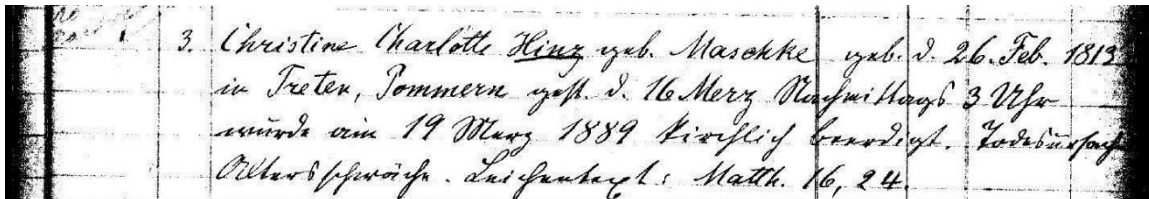 3. Christine Charlotte Hinz geb. Maschke geb. d. 26. Feb. 1813
in Treten, Pommern gest. d. 16 Merz Nachmittags 3 Uhr
wurde am 19 Merz 1889 kirchlich beerdigt. Todesursache
Altersschwäche. Leichentext: Matth. 16, 24.